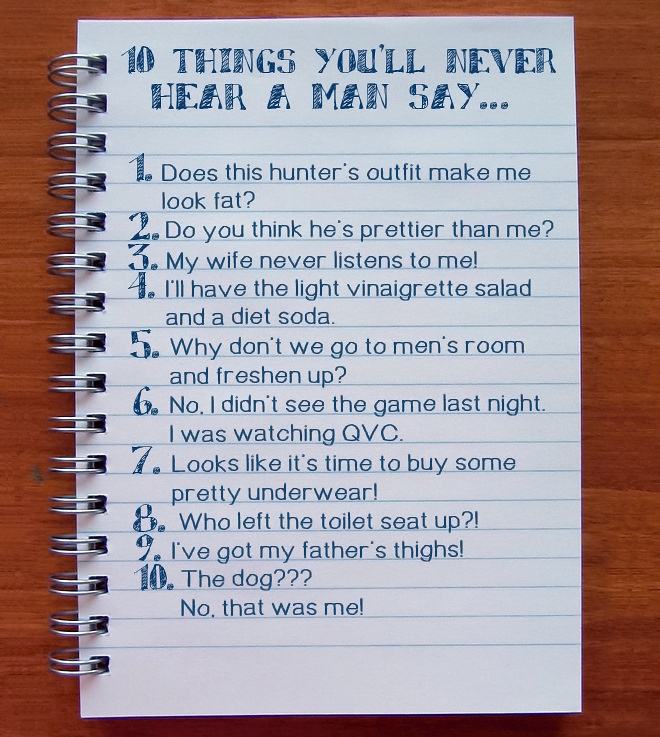 10 THINGS YOU'LL NEVER
HEAR A MAN SAY...
1. Does this hunter's outfit make me
look fat?
2. Do you think he's prettier than me?
3. My wife never listens to me!
4. I'll have the light vinaigrette salad
and a diet soda.
5. Why don't we go to men's room
and freshen up?
6. No, I didn't see the game last night.
I was watching QVC.
7. Looks like it's time to buy some
pretty underwear!
8. Who left the toilet seat up?!
9. I've got my father's thighs!
10. The dog???
No, that was me!